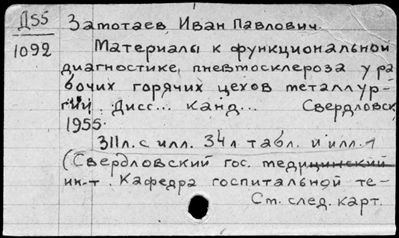 Д55
1092
Затотаев, Иван Павлович.
Материалы к функциональной
диагностике пневтосклероза у ра
бочих горячих цехов металлур-
гии. Дисс... канд... Свердловск,
1955.
311л. с илл. 34л табл. и илл.
(Свердловский гос. медицинский
ин-т. Кафедра госпитальной те-
См. след. карт.